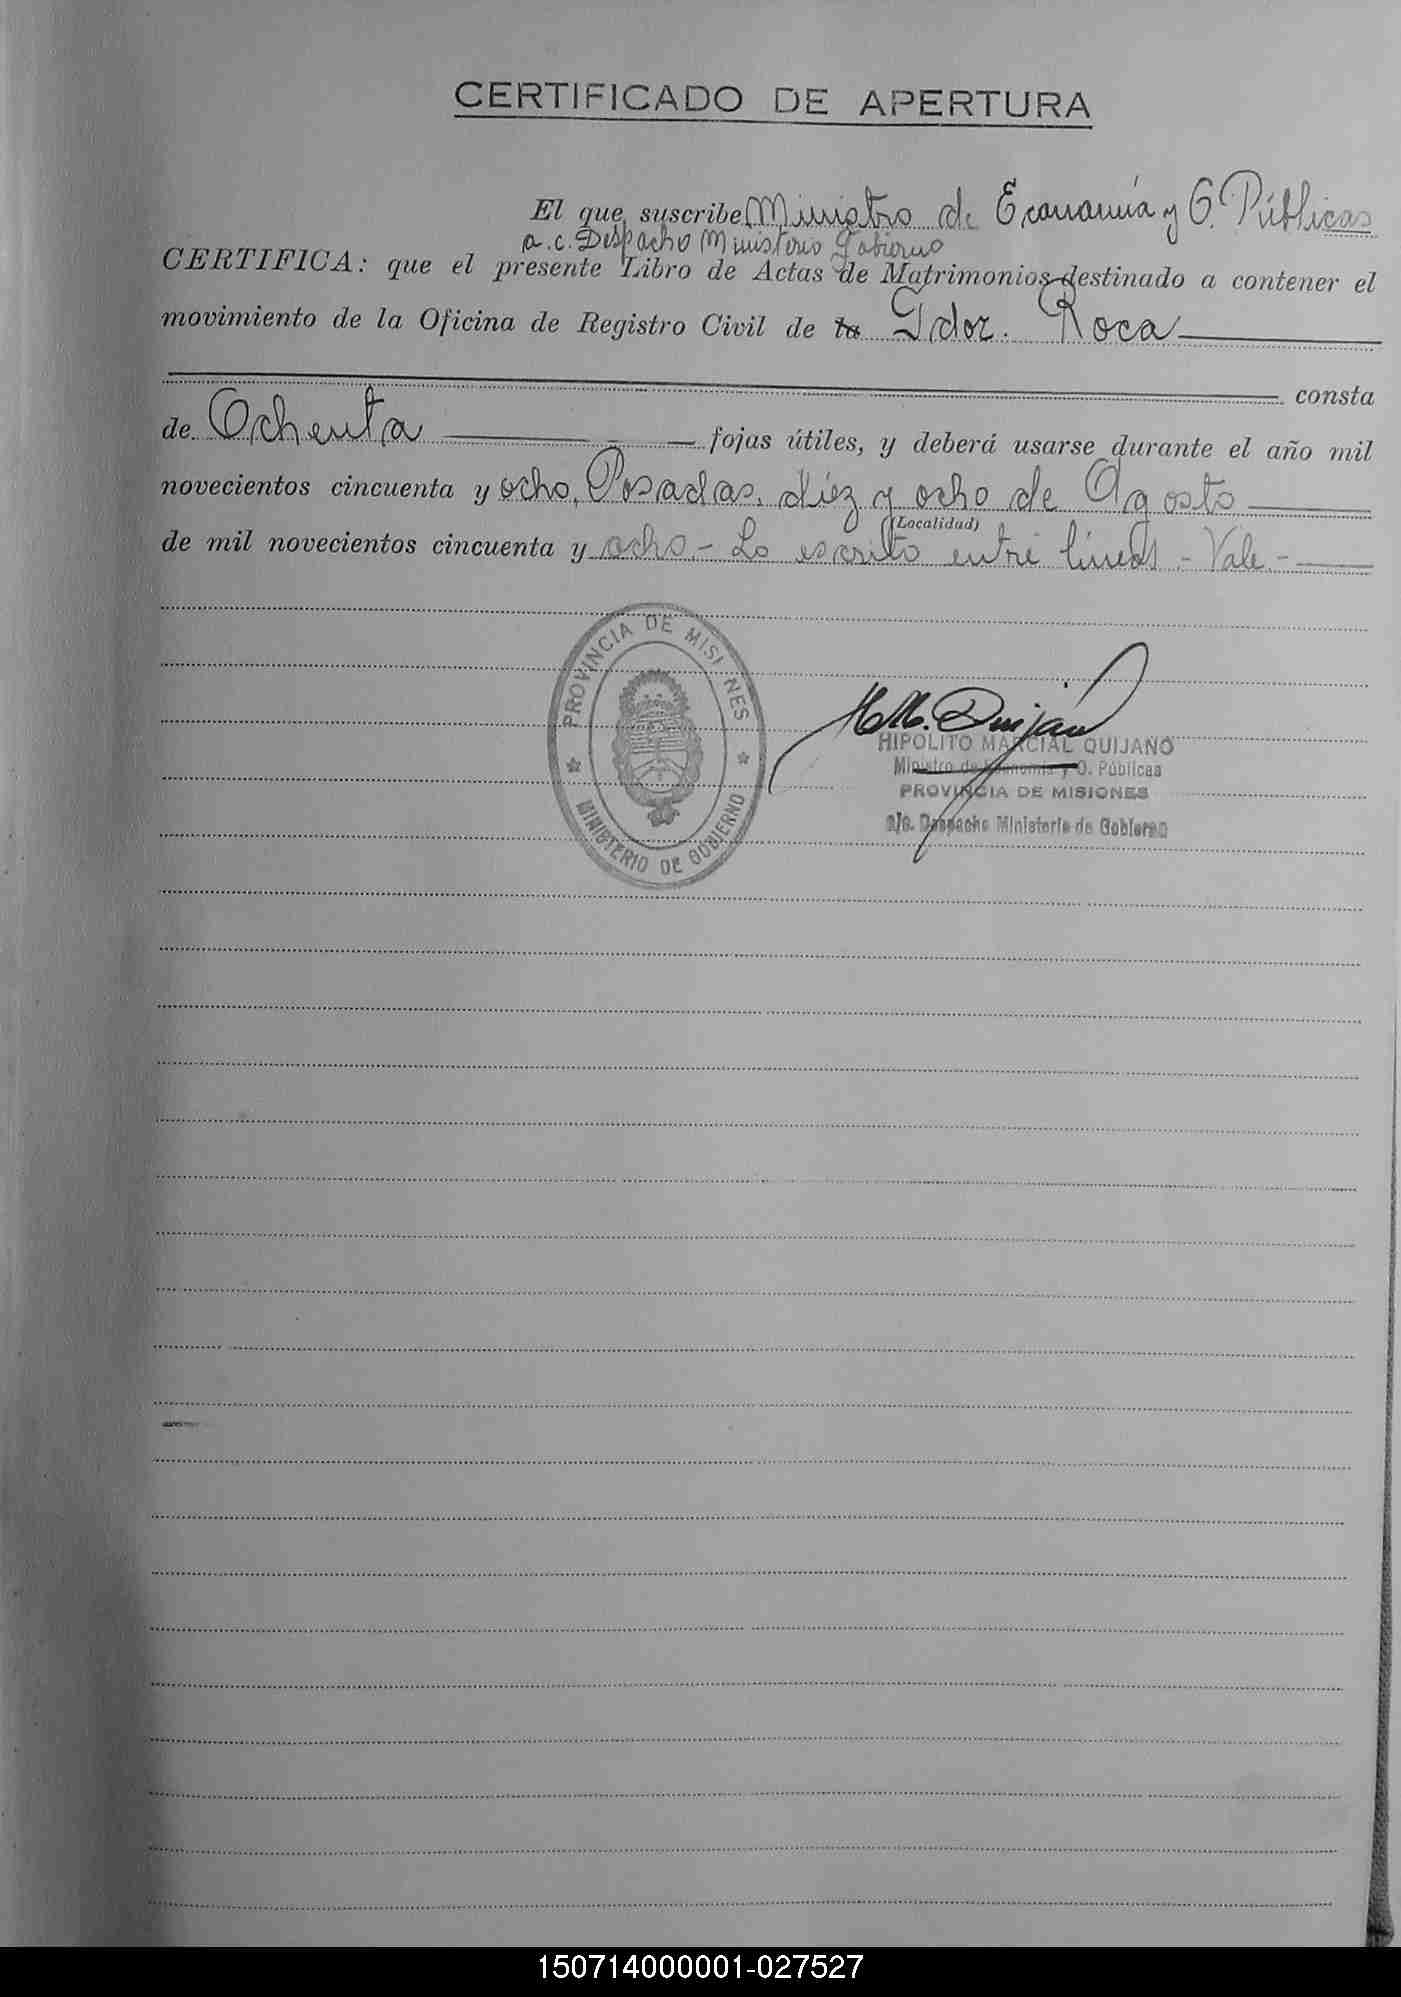 CERTIFICADO DE APERTURA
El que suscribe Ministro de Economía y O. Públicas
a.c. Despacho Ministerio Gobierno
CERTIFICA: que el presente Libro de Actas de Matrimonios destinado a contener el
movimiento de la Oficina de Registro Civil de la Gdor. Roca
consta
de Ochenta fojas útiles, y deberá usarse durante el año mil
novecientos cincuenta y ocho, Posadas, diez y ocho de Agosto
(Localidad)
de mil novecientos cincuenta y ocho.- Lo escrito entre líneas.- Vale.-
PROVINCIA DE MISI NES
MINISTERIO DE GOBIERNO
H.M. Quijano
HIPOLITO MARCIAL QUIJANO
Ministro de Economía y O. Públicas
PROVINCIA DE MISIONES
a/c. Despacho Ministerio de Gobierno
150714000001-027527